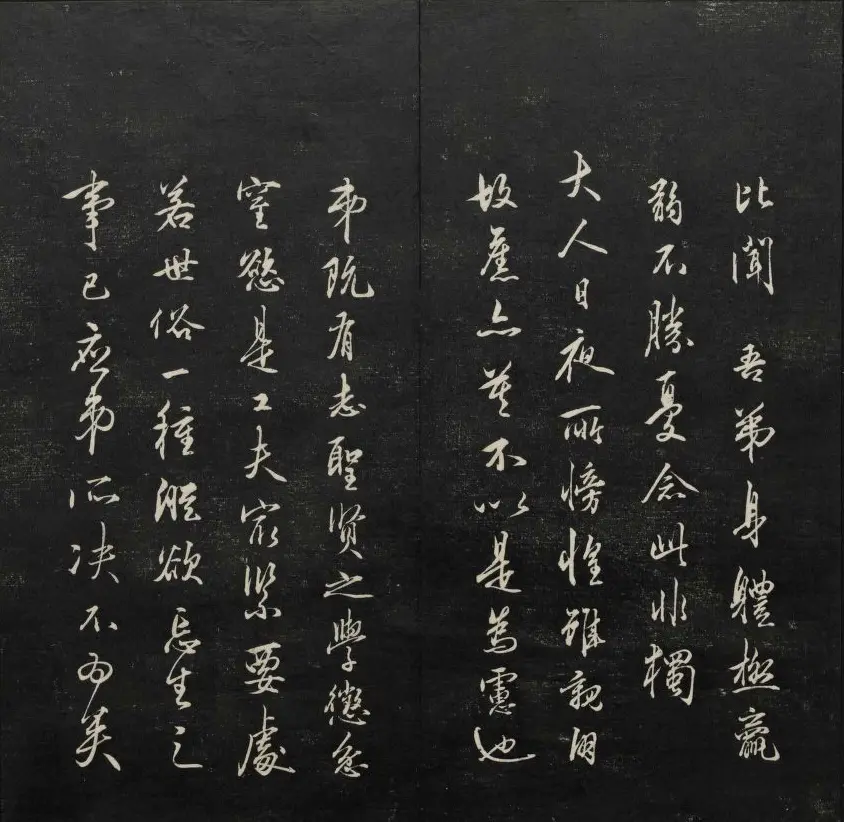 比聞 吾弟身體極羸
弱不勝憂念此非獨
大人日夜所惶雖親朋
故舊亦莫不以是為慮也
弟既有志聖賢之學懲忿
窒慾是工夫最緊要處
若世俗一種縱欲忘生之
事已應弟所决不為矣